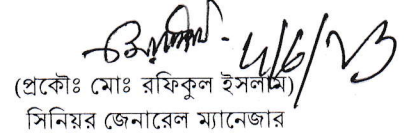 ৮/৬/২৩
(প্রকৌঃ মোঃ রফিকুল ইসলাম)
সিনিয়র জেনারেল ম্যানেজার